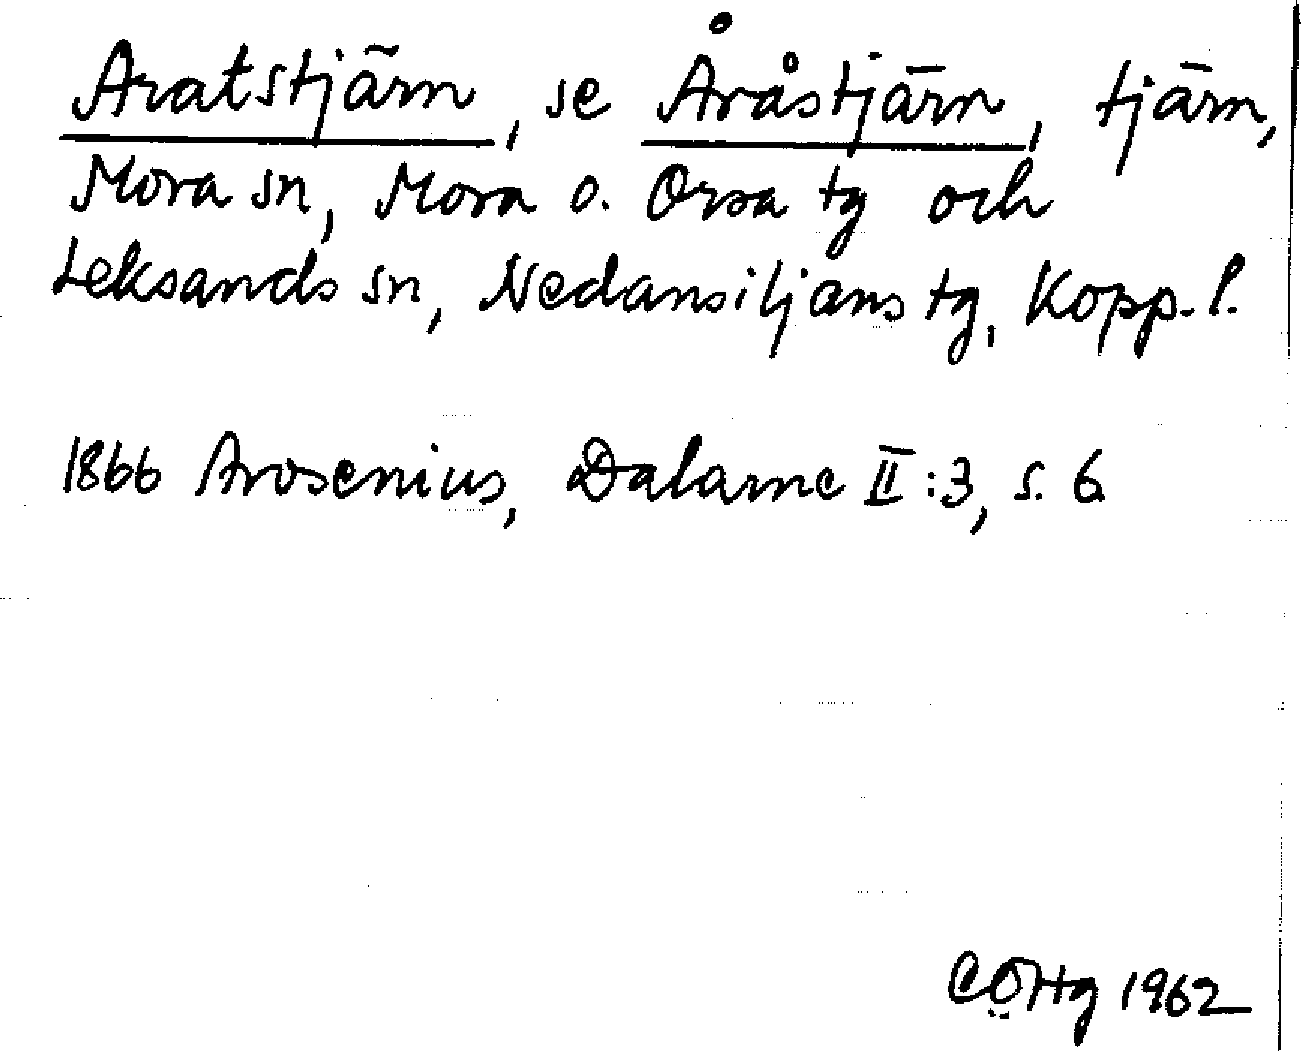 Aratstjärn, se Åråstjärn, tjärn,
Mora sn, Mora o. Orsa tg och
Leksands sn, Nedansiljans tg, Kopp. l.
1866 Arosenius, Dalarne II:3, s. 6
CÖHg 1962